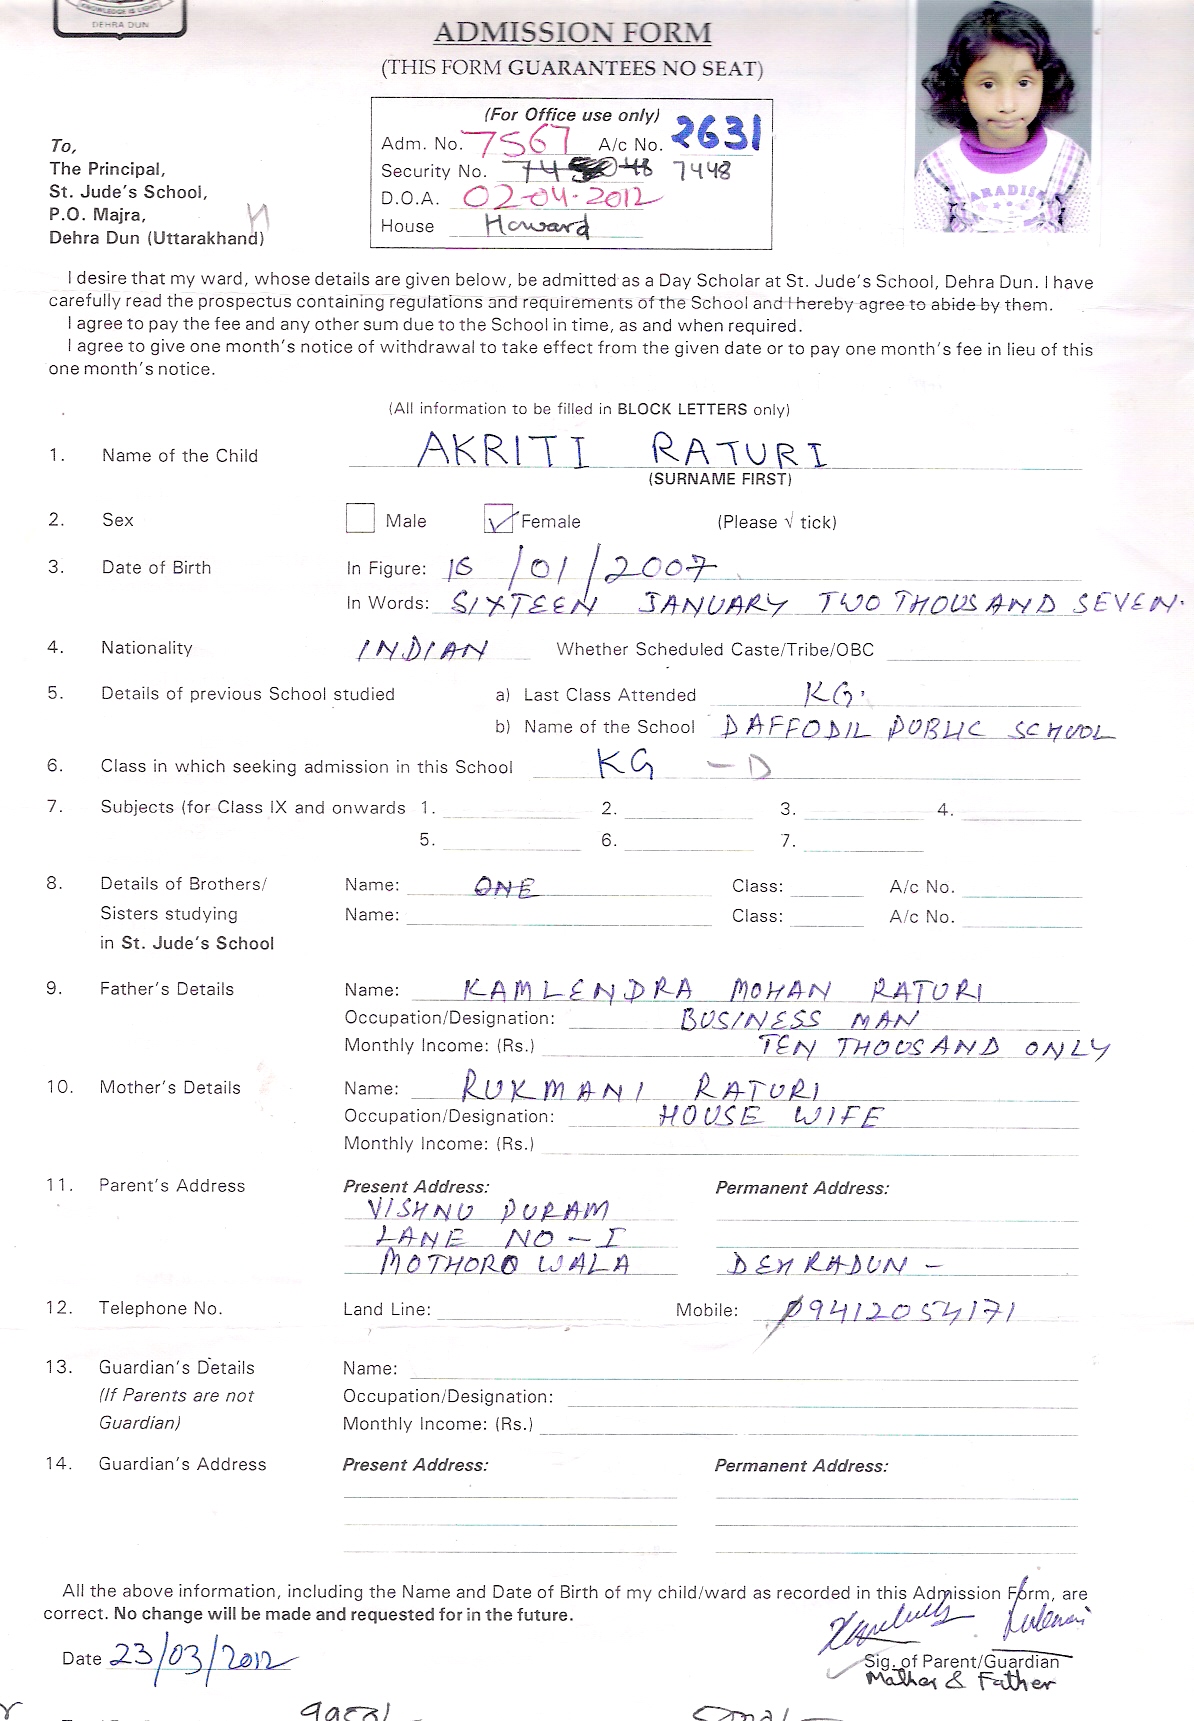 KNOWLEDGE IS LIGHT
DEHRA DUN
ADMISSION FORM
(THIS FORM GUARANTEES NO SEAT)
(For Office use only)
Adm. No. 7567 A/c No. 2631
Security No. 7448
D.O.A. 02-04-2012
House Howard
To,
The Principal,
St. Jude's School,
P.O. Majra,
Dehra Dun (Uttarakhand)
PARADISE
I desire that my ward, whose details are given below, be admitted as a Day Scholar at St. Jude's School, Dehra Dun. I have
carefully read the prospectus containing regulations and requirements of the School and I hereby agree to abide by them.
I agree to pay the fee and any other sum due to the School in time, as and when required.
I agree to give one month's notice of withdrawal to take effect from the given date or to pay one month's fee in lieu of this
one month's notice.
(All information to be filled in BLOCK LETTERS only)
1. Name of the Child AKRITI RATURI
(SURNAME FIRST)
2. Sex Male Female (Please √ tick)
3. Date of Birth In Figure: 16/01/2007
In Words: SIXTEEN JANUARY TWO THOUSAND SEVEN.
4. Nationality INDIAN Whether Scheduled Caste/Tribe/OBC
5. Details of previous School studied a) Last Class Attended KG.
b) Name of the School DAFFODIL PUBLIC SCHOOL
6. Class in which seeking admission in this School KG - D
7. Subjects (for Class IX and onwards 1. 2. 3. 4.
5. 6. 7.
8. Details of Brothers/ Name: ONE Class: A/c No.
Sisters studying Name: Class: A/c No.
in St. Jude's School
9. Father's Details Name: KAMLENDRA MOHAN RATURI
Occupation/Designation: BUSINESS MAN
Monthly Income: (Rs.) TEN THOUSAND ONLY
10. Mother's Details Name: RUKMANI RATURI
Occupation/Designation: HOUSE WIFE
Monthly Income: (Rs.)
11. Parent's Address Present Address: Permanent Address:
VISHNU PURAM
LANE NO-I
MOTHOROWALA DEHRADUN -
12. Telephone No. Land Line: Mobile: 09412054171
13. Guardian's Details Name:
(If Parents are not Occupation/Designation:
Guardian) Monthly Income: (Rs.)
14. Guardian's Address Present Address: Permanent Address:
All the above information, including the Name and Date of Birth of my child/ward as recorded in this Admission Form, are
correct. No change will be made and requested for in the future.
Date 23/03/2012
Sig. of Parent/Guardian
Mother & Father